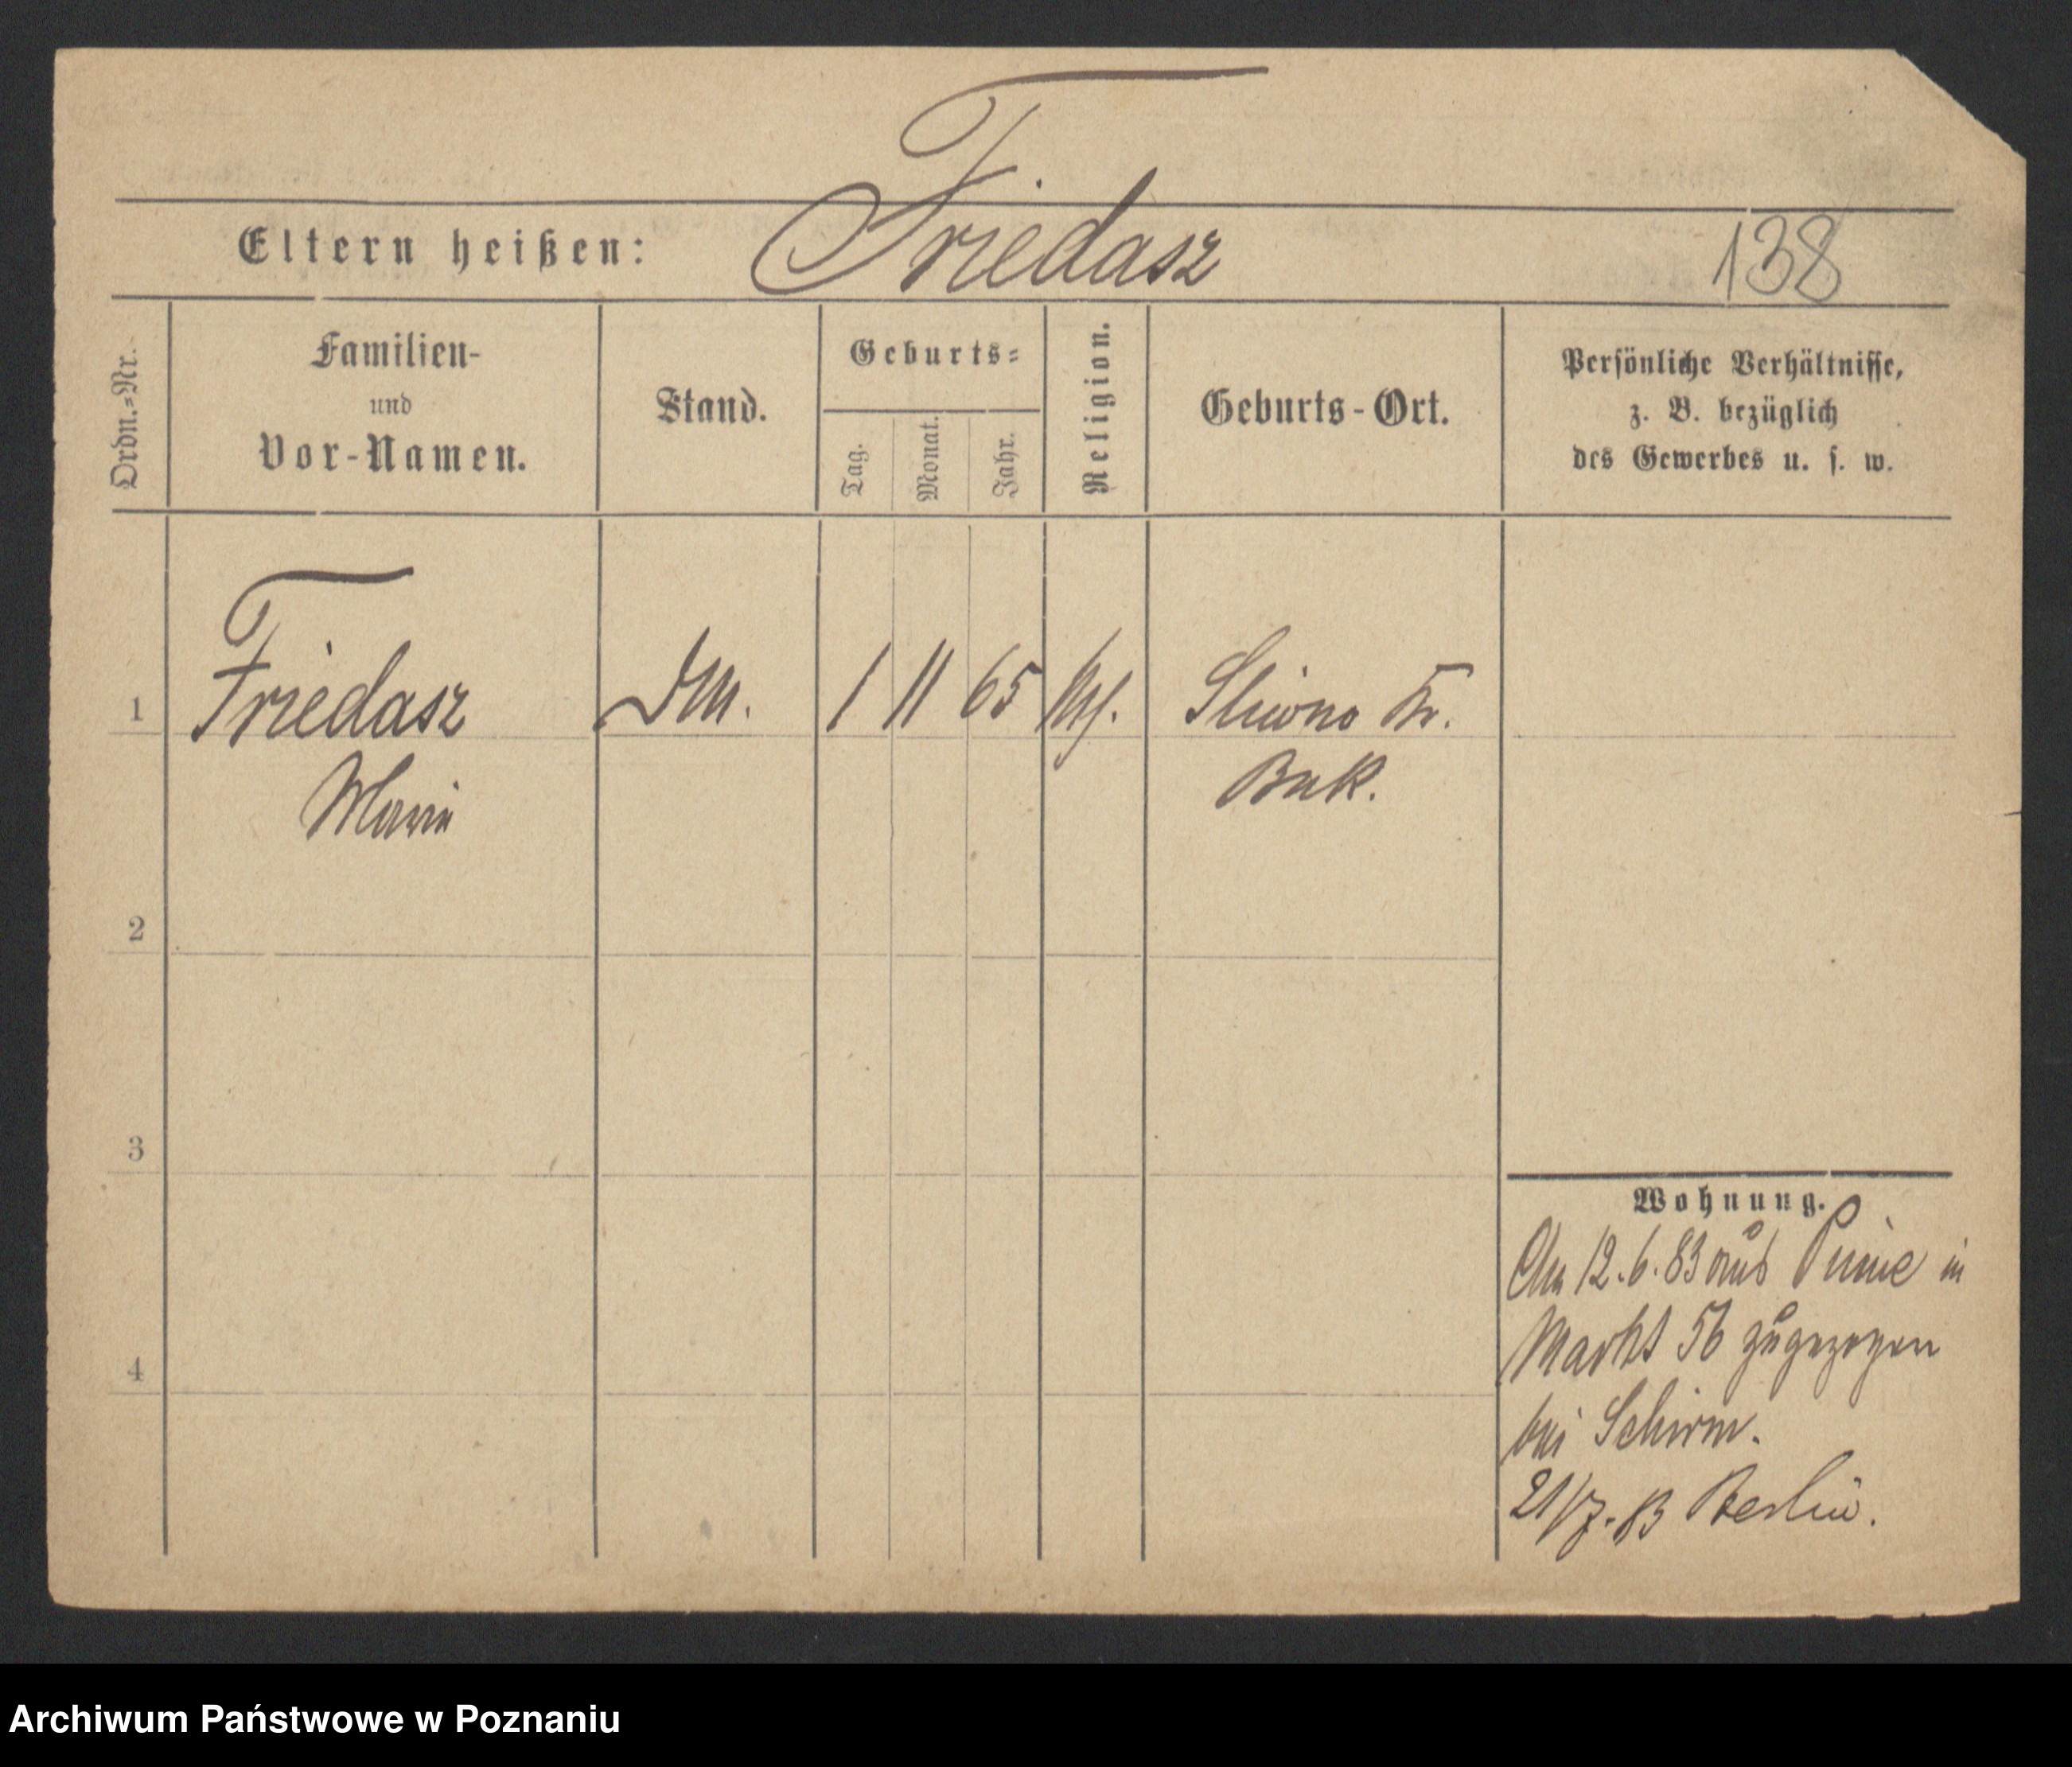 Eltern heißen: Friedasz 138
Ordn.-Nr.
Familien-
und
Vor-Namen.
Stand.
Geburts-
Tag.
Monat.
Jahr.
Religion.
Geburts-Ort.
Persönliche Verhältnisse,
z. B. bezüglich
des Gewerbes u. s. w.
1 Friedasz DM. 1 11 65 Sliwno Kr.
Marie Buk.
2
3
4
Wohnung.
Am 12.6.83 aus in
Markt 56 zugezogen
bei Schirm.
21/7. 83 Berlin.
Archiwum Państwowe w Poznaniu